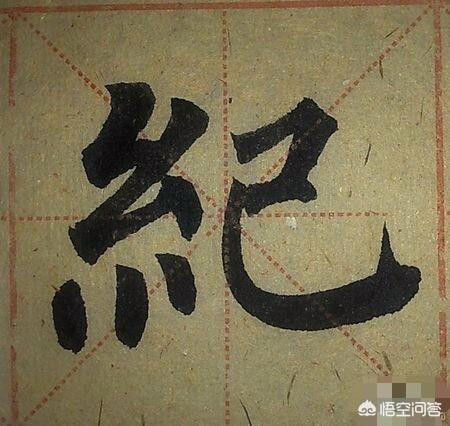 紀
悟空问答